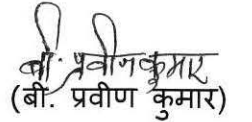 बी. प्रवीण कुमार
(बी. प्रवीण कुमार)